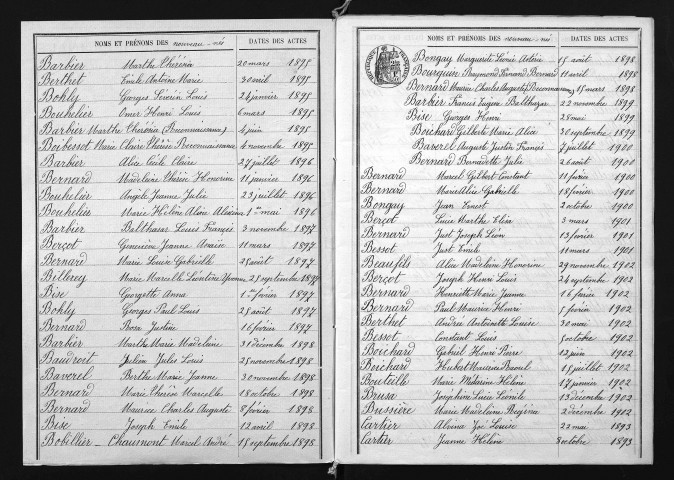 NOMS ET PRÉNOMS DES nouveau-nés DATES DES ACTES
Barbier Marthe Thérésia 20 mars 1895
Berthet Emile Antoine Marie 30 avril 1895
Bohly Georges Louis 24 janvier 1895
Bouhelier Omer Henri Louis 6 mars 1895
Barbier Marthe Thérésia (Reconnaissance) 4 juin 1895
Boibessot Marie Claire Thérèse Reconnaissance 4 novembre 1895
Barbier Alice Cécile Claire 27 juillet 1896
Bernard Madeleine Thérèse Honorine 11 janvier 1896
Bouhelier Angèle Jeanne Julie 23 juillet 1896
Bouhelier Marie Hélène Aline 1er mai 1896
Barbier Balthasar Louis François 3 novembre 1897
Berçot Geneviève Jeanne 11 mars 1897
Bernard Marie Louise Gabrielle 28 août 1897
Billerey Marie Marcelle Léontine Yvonne 25 septembre 1897
Bise Georgette Anna 1er février 1897
Bohly Georges Paul Louis 25 août 1897
Bernard Rosa Justine 16 février 1897
Barbier Marthe Marie Madeleine 31 décembre 1898
Baudroit Julien Jules Louis 25 novembre 1898
Baverel Berthe Marie Jeanne 30 novembre 1898
Bernard Marie Thérèse Marcelle 18 octobre 1898
Bernard Maurice Charles Auguste 8 février 1898
Bise Joseph Emile 12 avril 1898
Bobillier-Chaumont Marcel André 15 septembre 1898
NOMS ET PRÉNOMS DES nouveau-nés DATES DES ACTES
Bongay Marguerite Léonie 15 août 1898
Bourquin Raymond Fernand Bernard 11 avril 1898
Bernard Maurice Charles Auguste (Reconnaissance) 15 mars 1898
Barbier Francis Eugène Balthazar 22 novembre 1899
Bise Georges Henri 28 mai 1899
Boichard Gilberte Marie Alice 30 septembre 1899
Baverel Auguste Justin Francis 7 juillet 1900
Bernard Bernadette Julie 26 août 1900
Bernard Marcel Gilbert Constant 11 février 1900
Bernard Maria Alix Gabrielle 18 février 1900
Bongay Jean Ernest 2 octobre 1900
Berçot Lucie Marthe Elisa 3 mars 1901
Bernard Just Joseph Léon 13 février 1901
Bessot Just Emile 11 mars 1901
Beaufils Alice Madeleine Honorine 29 novembre 1902
Berçot Joseph Henri Louis 24 septembre 1902
Bernard Henriette Marie Jeanne 16 février 1902
Bernard Paul Maurice Henri 5 février 1902
Berthet Andrée Antoinette Louise 30 mai 1902
Bessot Constant Louis 5 octobre 1902
Boichard Gabriel Henri Pierre 12 juin 1902
Boichard Hubert Maurice Raoul 18 juillet 1902
Bouteille Marie Hélène 17 janvier 1902
Brusa Joséphine Lucie Léonile 13 décembre 1902
Bussière Marie Madeleine 2 décembre 1902
Cartier Zoé Louise 22 mai 1893
Cartier Jeanne Hélène 8 octobre 1893